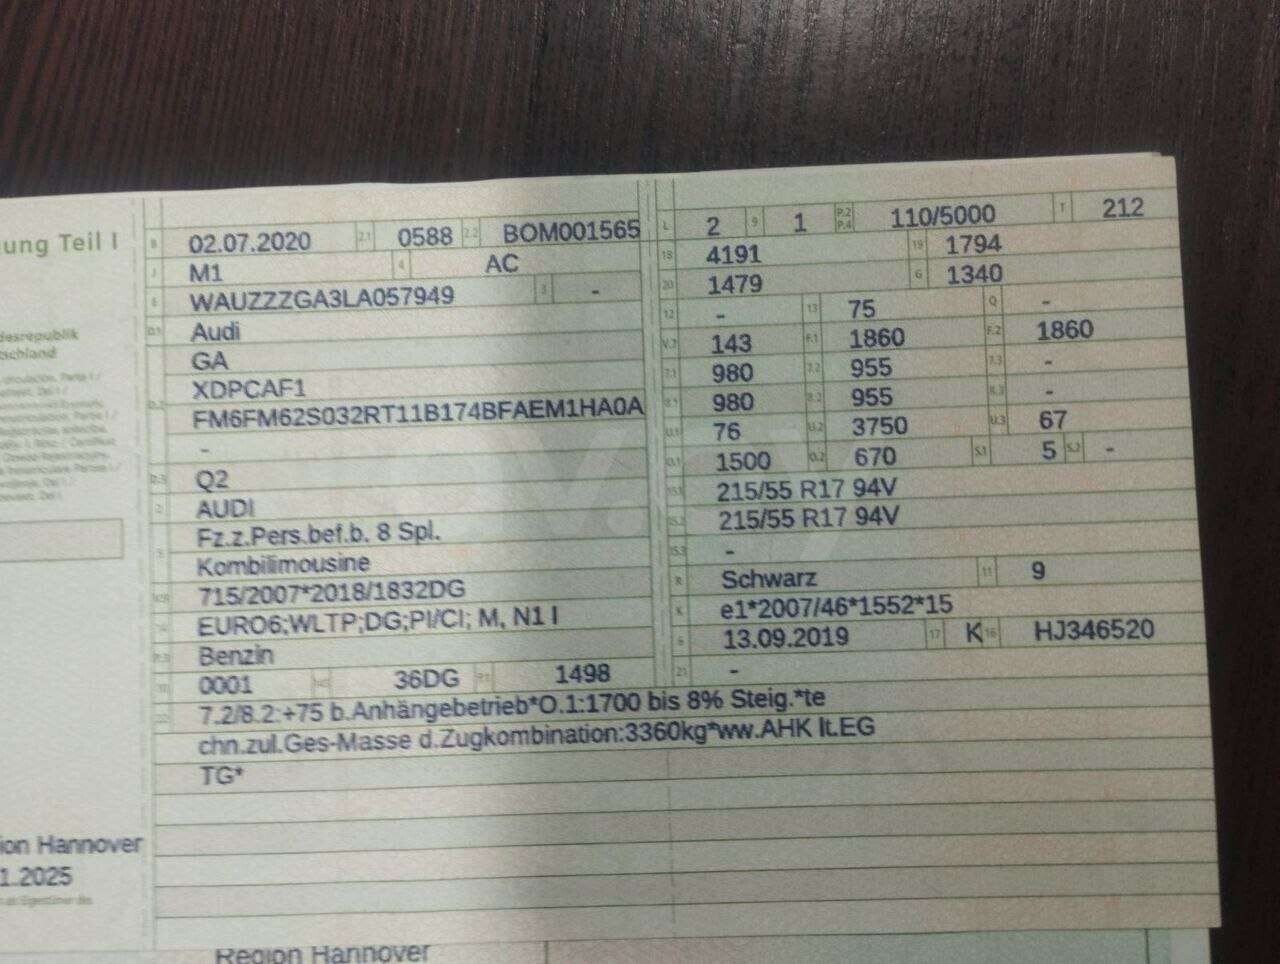 ung Teil I
desrepublik
tschland
B 02.07.2020 2.1 0588 2.2 BOM001565
J M1 4 AC
E WAUZZZGA3LA057949 3 -
D.1 Audi
GA
XDPCAF1
D.2 FM6FM62S032RT11B174BFAEM1HA0A
-
D.3 Q2
2 AUDI
Fz.z.Pers.bef.b. 8 Spl.
5 Kombilimousine
V.9 715/2007*2018/1832DG
14 EURO6;WLTP;DG;PI/CI; M, N1 I
P.3 Benzin
10 0001 14.1 36DG P.1 1498
L 2 9 1 P.2 P.4 110/5000 T 212
18 4191 19 1794
20 1479 G 1340
12 - 13 75 Q -
V.7 143 F.1 1860 F.2 1860
7.1 980 7.2 955 7.3 -
8.1 980 8.2 955 8.3 -
U.1 76 U.2 3750 U.3 67
O.1 1500 O.2 670 S.1 5 S.2 -
15.1 215/55 R17 94V
15.2 215/55 R17 94V
15.3 -
R Schwarz 11 9
K e1*2007/46*1552*15
6 13.09.2019 17 K 16 HJ346520
21 -
22 7.2/8.2:+75 b.Anhängebetrieb*O.1:1700 bis 8% Steig.*te
chn.zul.Ges-Masse d.Zugkombination:3360kg*ww.AHK lt.EG
TG*
ion Hannover
1.2025
Region Hannover